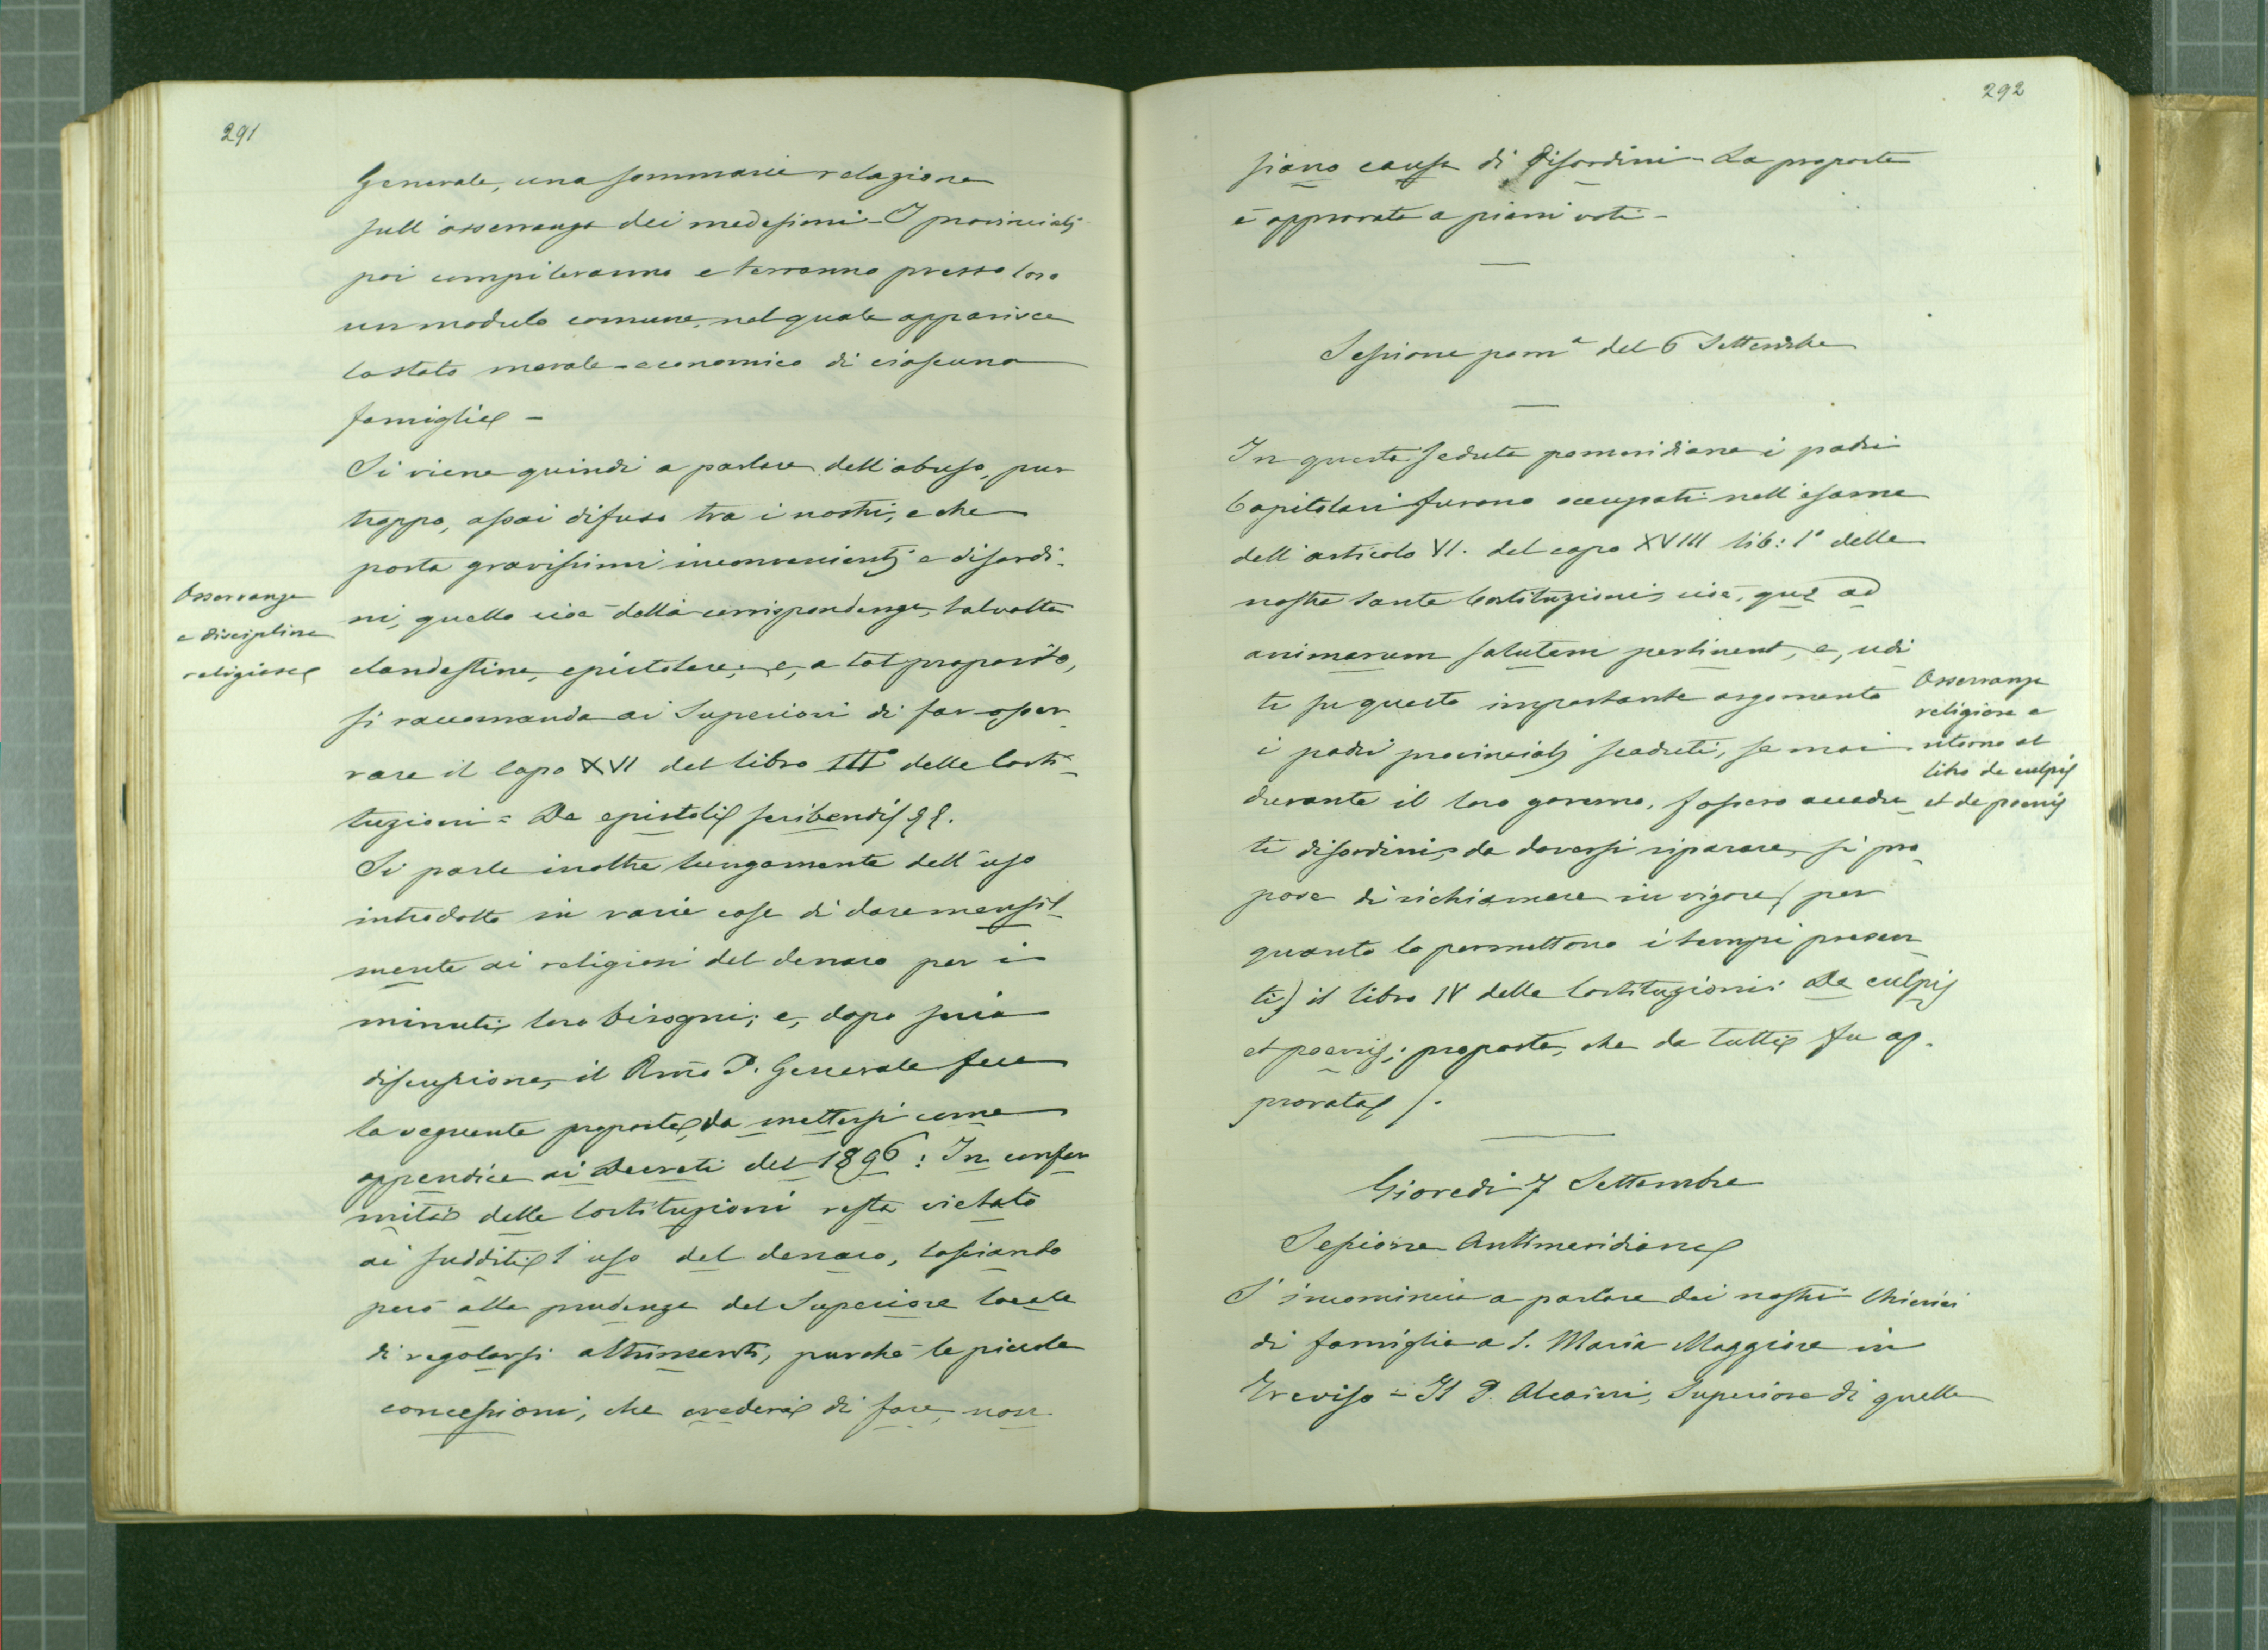 291
Generale, una sommaria relazione
sull'osservanza dei medesimi - I provinciali
poi compileranno e terranno presso loro
un modulo comune, nel quale apparisca
lo stato morale-economico di ciascuna
famiglia -
Si viene quindi a parlare dell'abuso, pur
troppo, assai difuso tra i nostri, e che
porta gravissimi inconvenienti e disordi-
ni, quello cioè della corrispondenza, talvolta
clandestina, epistolare; e, a tal proposito,
si raccomanda ai Superiori di far osser-
vare il Capo XVI del libro III° delle Costi-
tuzioni = De epistolis scribendis §§.
Si parla inoltre lungamente dell'uso
introdotto in varie case di dare mensil-
mente ai religiosi del denaro per i
minuti loro bisogni; e, dopo seria
discussione, il Rmo P. Generale fece
la seguente proposta, da mettersi come
appendice ai Decreti del 1896: In confor
mità delle Costituzioni resta vietato
ai sudditi l'uso del denaro, lasciando
però alla prudenza del Superiore locale
di regolarsi altrimenti, purchè le piccole
concessioni, che crederà di fare, non
Osservanza
e disciplina
religiosa
292
siano causa di disordini - La proposta
è approvata a pieni voti -
Sessione pom.a del 6 Settembre
In questa seduta pomeridiana i padri
Capitolari furono occupati nell'esame
dell'articolo VI. del capo XVIII lib: 1° delle
nostre sante Costituzioni, cioè, quæ ad
animarum salutem pertinent, e, udi
ti su questo importante argomento
i padri provinciali scaduti, se mai
durante il loro governo, fossero accadu
ti disordini, da doversi riparare, si pro-
pose di richiamare in vigore (per
quanto lo permettono i tempi presen
ti) il libro IV delle Costituzioni: De culpis
et poenis; proposta, che da tutti fu ap-
provata /.
Osservanza
religiosa e
ritorno al
libro de culpis
et de poenis
Giovedì 7 Settembre
Sessione Antimeridiana
S'incomincia a parlare dei nostri Chierici
di famiglia a S. Maria Maggiore in
Treviso = Il P. Alcaini, Superiore di quella